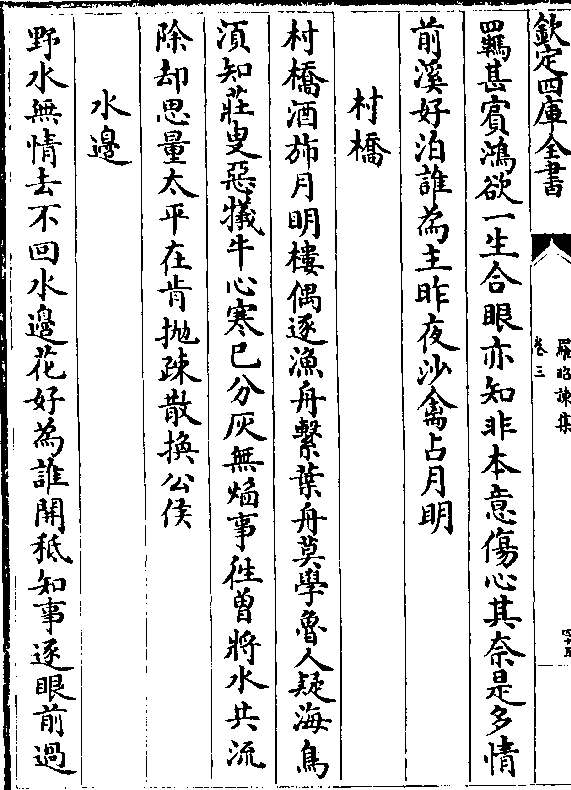 欽定四庫全書
羅昭諫集
卷三
羈甚賓鴻欲一生合眼亦知非本意傷心其奈是多情
前溪好泊誰為主昨夜沙禽占月明
村橋
村橋酒斾月明樓偶逐漁舟繫葉舟莫學魯人疑海鳥
湏知莊叟惡犧牛心寒已分灰無焰事徃曾將水共流
除却思量太平在肯抛疎散換公侯
水邊
野水無情去不回水邊花好為誰開秪知事逐眼前過